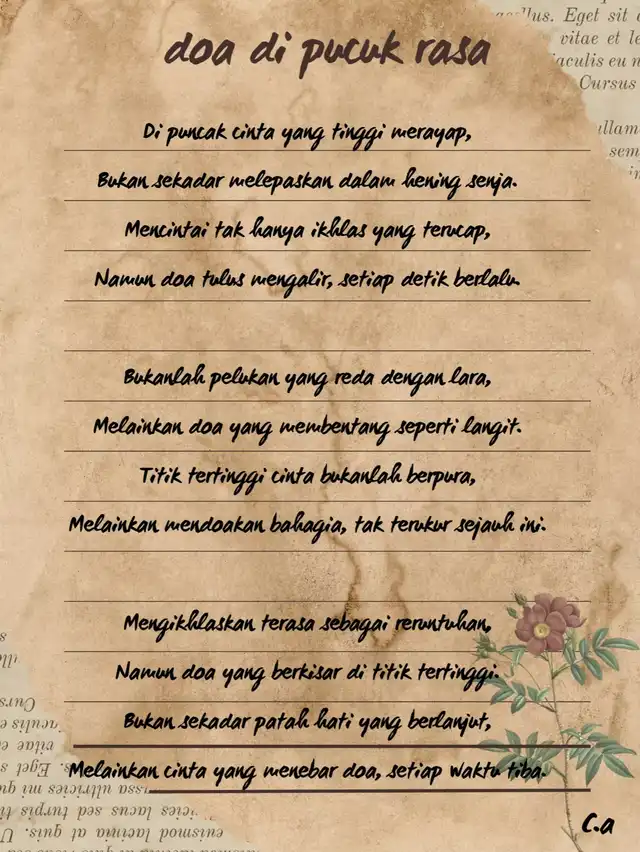 doa di pucuk rasa
Di puncak cinta yang tinggi merayap,
Bukan sekadar melepaskan dalam hening senja.
Mencintai tak hanya ikhlas yang terucap,
Namun doa tulus mengalir, setiap detik berlalu.
Bukanlah pelukan yang reda dengan lara,
Melainkan doa yang membentang seperti langit.
Titik tertinggi cinta bukanlah berpura,
Melainkan mendoakan bahagia, tak terukur sejauh ini.
Mengikhlaskan terasa sebagai reruntuhan,
Namun doa yang berkisar di titik tertinggi.
Bukan sekadar patah hati yang berlanjut,
Melainkan cinta yang menebar doa, setiap waktu tiba.
C.a
Eget sit
vitae et
iaculis eu
Cursus
sem
Cursu
vitae e
Eget s
ultricies mi qu
lacus sed turpis
euismod lacinia at quis. U